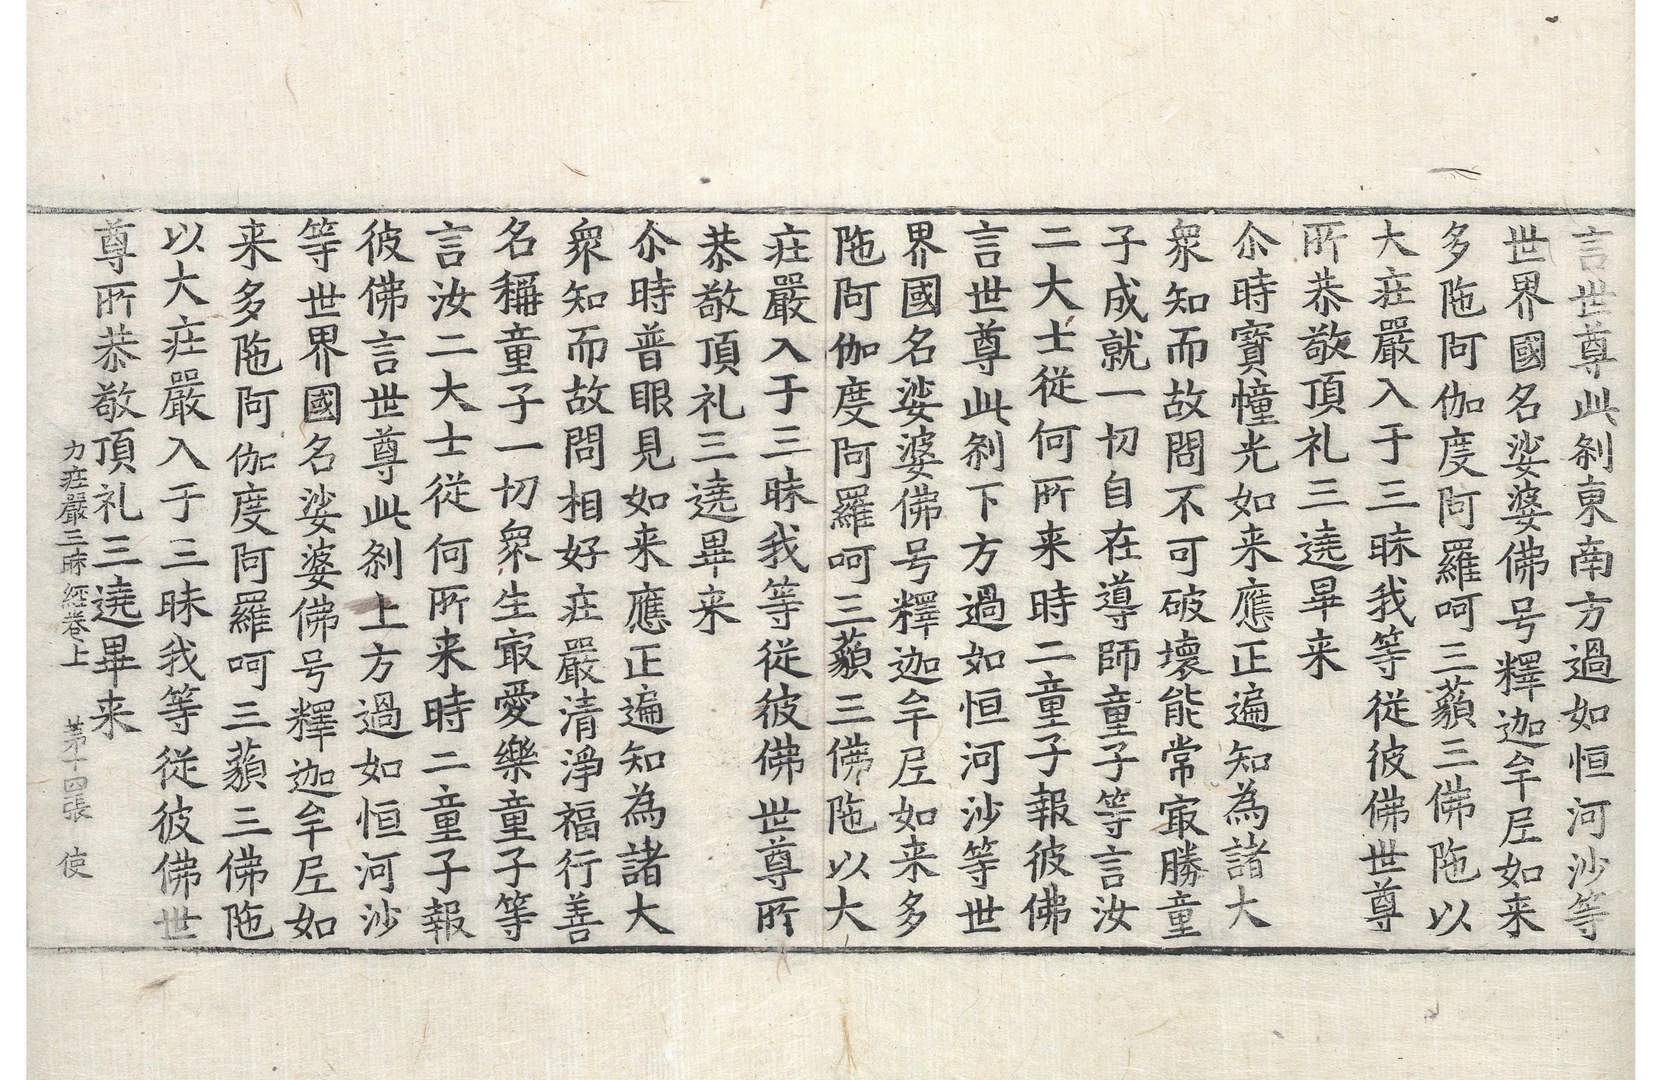 言世尊此刹東南方過如恒河沙等
世界國名娑婆佛号釋迦牟尼如来
多陁阿伽度阿羅呵三藐三佛陁以
大庄嚴入于三昧我等從彼佛世尊
所恭敬頂礼三遶畢来
尒時寶幢光如来應正遍知為諸大
衆知而故問不可破壞能常㝡勝童
子成就一切自在導師童子等言汝
二大士從何所来時二童子報彼佛
言世尊此刹下方過如恒河沙等世
界國名娑婆佛号釋迦牟尼如来多
陁阿伽度阿羅呵三藐三佛陁以大
庄嚴入于三昧我等從彼佛世尊所
恭敬頂礼三遶畢来
尒時普眼見如来應正遍知為諸大
衆知而故問相好庄嚴清淨福行善
名稱童子一切衆生㝡愛樂童子等
言汝二大士從何所来時二童子報
彼佛言世尊此刹上方過如恒河沙
等世界國名娑婆佛号釋迦牟尼如
来多陁阿伽度阿羅呵三藐三佛陁
以大庄嚴入于三昧我等從彼佛世
尊所恭敬頂礼三遶畢来
力庄嚴三昧經卷上 苐十四張 使